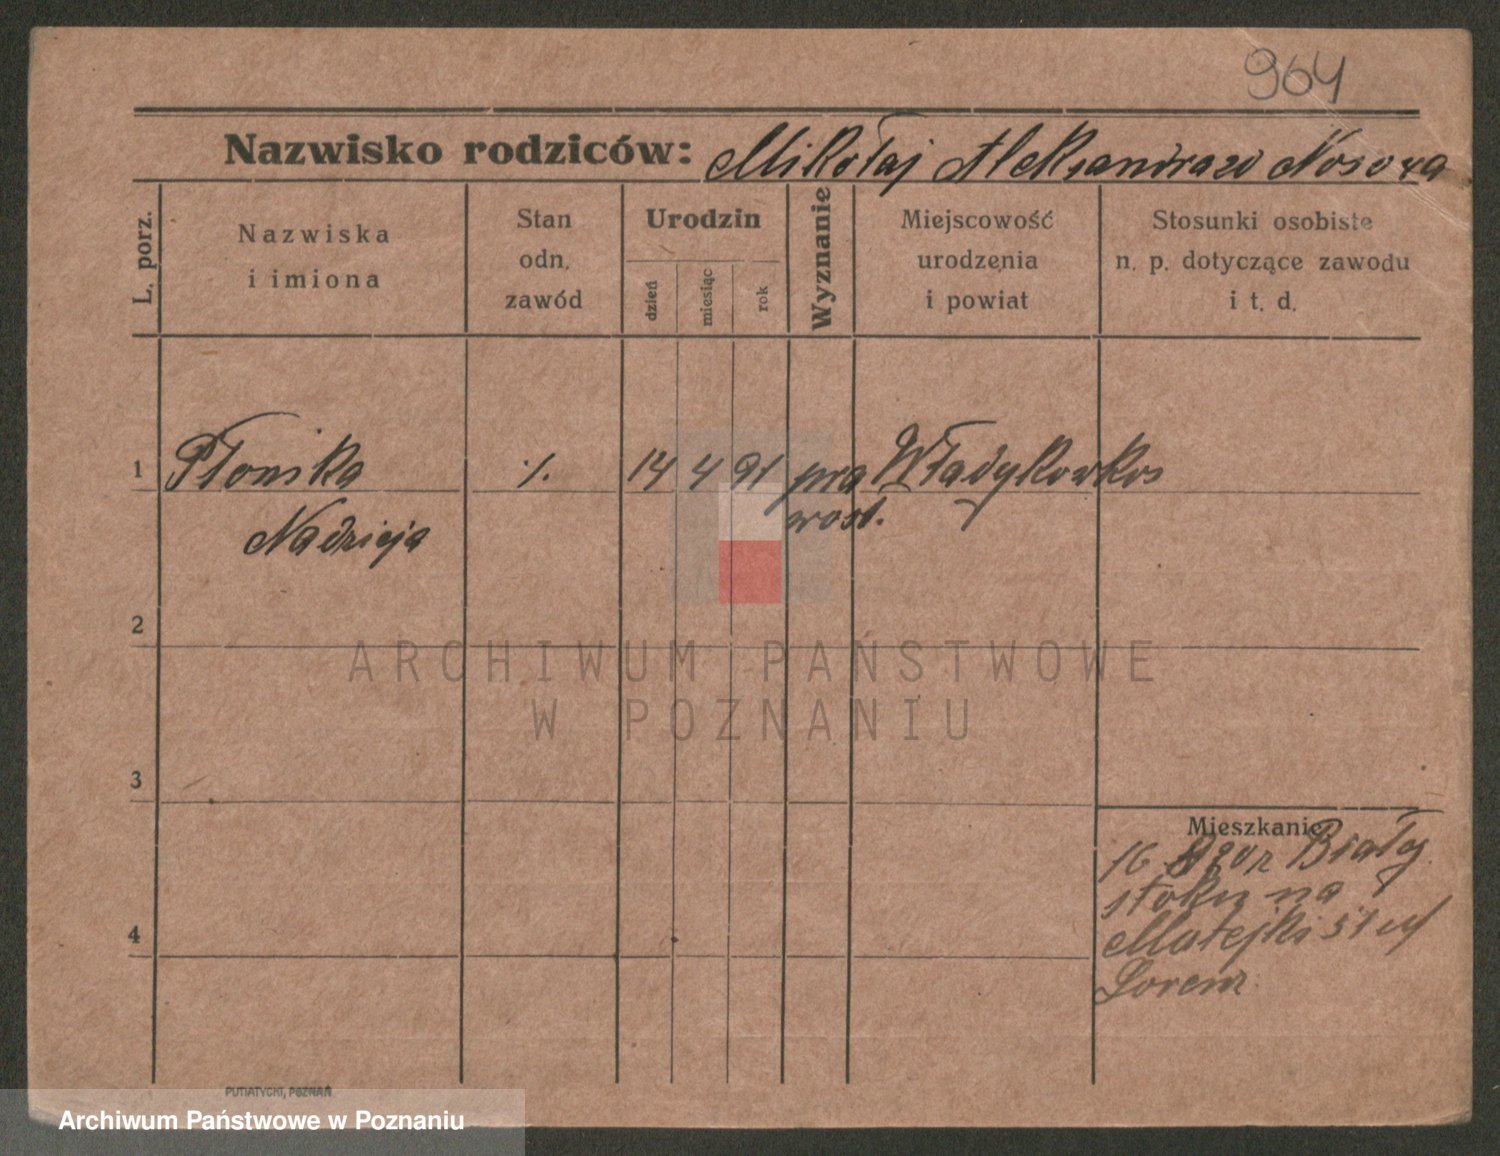 964
Nazwisko rodziców: Mikołaj Aleksandrow Nosowa
L. porz.
Nazwiska
i imiona
Stan
odn.
zawód
Urodzin
dzień
miesiąc
rok
Wyznanie
Miejscowość
urodzenia
i powiat
Stosunki osobiste
n. p. dotyczące zawodu
i t. d.
1 Płonska ./. 14 4 91 pra Władykowkos
wosł.
Nadzieja
2
ARCHIWUM PAŃSTWOWE
W POZNANIU
3
Mieszkanie
16 z Biały
stoku na
Matejki 51 u
Lorenz
4
PUTIATYCKI, POZNAŃ
Archiwum Państwowe w Poznaniu